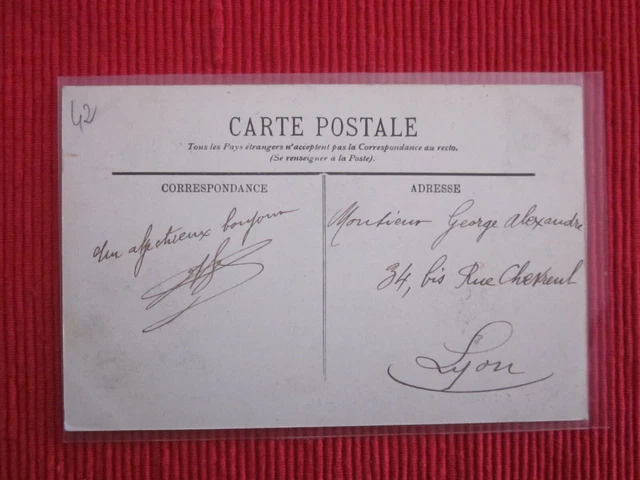 42
CARTE POSTALE
Tous les Pays étrangers n'acceptent pas la Correspondance au recto.
(Se renseigner à la Poste).
CORRESPONDANCE
un affectueux bonjour
ADRESSE
Monsieur George Alexandre
34, bis Rue Chevreul
Lyon